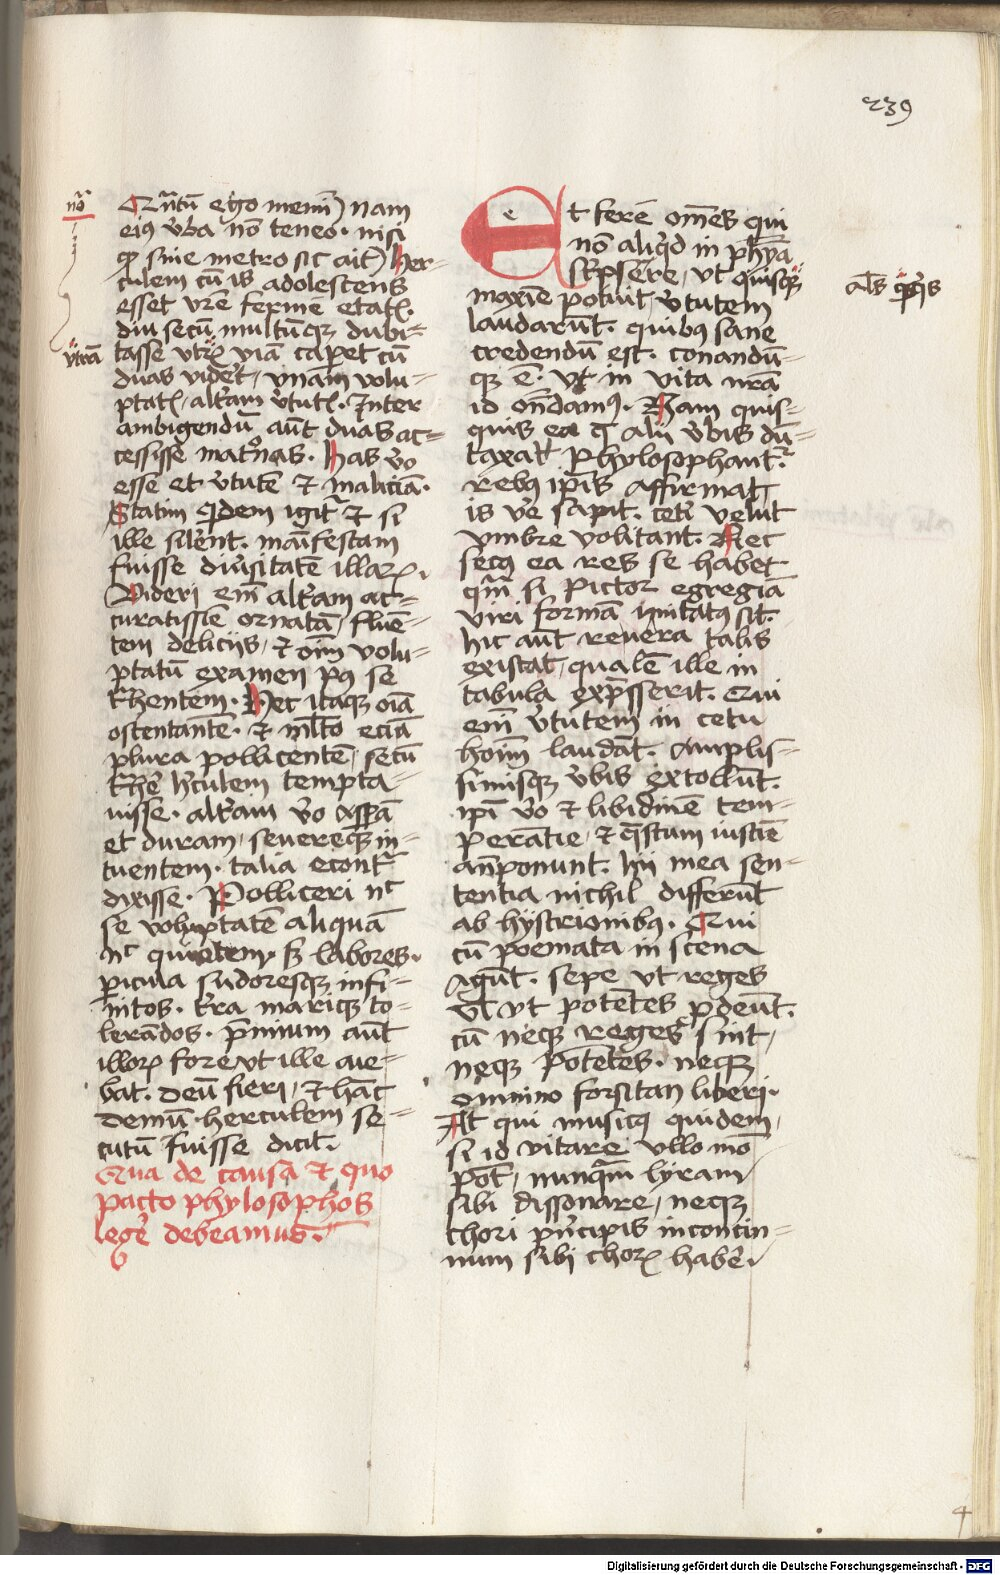 239
nō
Qn̄tū ego meminī nam
eiꝰ v̓ba nō teneo · nisi
ꝙ sine metro sic ait) her-
culem cū is adolescens
esset vrē fermē etatꝭ.
diu secū multūqꝫ dubi-
tasse vtꝛꝭ viā capet cū
vtrā
duas videt̓, vnam volu-
ptatꝭ, alt̓am v̓tutꝭ. Inter
ambigendū aūt duas ac-
cessisse mat̓nas. has v̓o
esse et v̓tutē et maliciā.
Statim qͥdem igitᷣ et si
ille silēnt. maīfestam
fuisse diu̓sitatē illaꝝ.
Videri em̄ alt̓am ac-
curatissīe ornatā, fluē-
tem deliciis, et oīm volu-
ptatū examen pꝰ se
t̓hentem. Hec itaqꝫ oīa
ostentantē. et ml̄to eciā
plura pollicentē, secū
t̓he̓ h̓culem tempta-
uisse. alt̓am v̓o aspā
et duram, seuereqꝫ in-
tuentem. talia econtᷣ
dixisse. Polliceri nͨ
se voluptatē aliquā
nͨ quietem. sꝫ labores.
ꝑicula sudoresqꝫ infi-
nitos. t̓ra mariqꝫ to-
lerādos. p̄mium aūt
illoꝝ fore vt ille aie-
bat. deū fieri, et hāc
demū. herculem se-
cutū fuisse dicit.
Qua de causa et quo
pacto phylosophos
lege̓ debeamus.
e
Et fere om̄es qui
nō aliqͥd in phȳa
sc̓pse̓re, vt quisqꝫ
als̄
maxīe potuit, v̓tutem
laudarūt. quibꝰ sane
credendū est. conandū-
qꝫ ē. vt in vita nrā
id on̄damꝰ. Nam quis-
quis ea q̄ alii v̓bis dū-
taxat phylosophantᷣ
rebꝰ ip̄is affirmat
is ve̓ sapit. cet̓i velut
vmbre volitant. Nec
secꝰ ea res se habet
qm̄ si pictor egregiā
viri formā imitatꝰ sit.
hic aūt reuera talis
existat, qualē ille in
tabula exp̄sserit. Qui
em̄ v̓tutem in cetu
hoīm laudāt. amplis-
simisqꝫ v̓bis extollūt.
ip̄i v̓o et libidinē tem-
perātie, et q̄stum iusticē
an̄ponunt. hii mea sen-
tentia nichil differūt
ab hystrionibꝰ. Qui
cū poemata in scena
agūt. sepe vt reges
vl̄ vt potētes ꝓdeūt.
cū neqꝫ reges sint,
neqꝫ potētes. neqꝫ
omnino forsitan liberi.
At qui musicꝰ quidem,
si id vitare vllo mō
pōt, nunqᷓm lyram
sibi dissonare, neqꝫ
chori pͥncipis inconcin-
num sibi choꝝ habe̓.
4
Digitalisierung gefördert durch die Deutsche Forschungsgemeinschaft - DFG